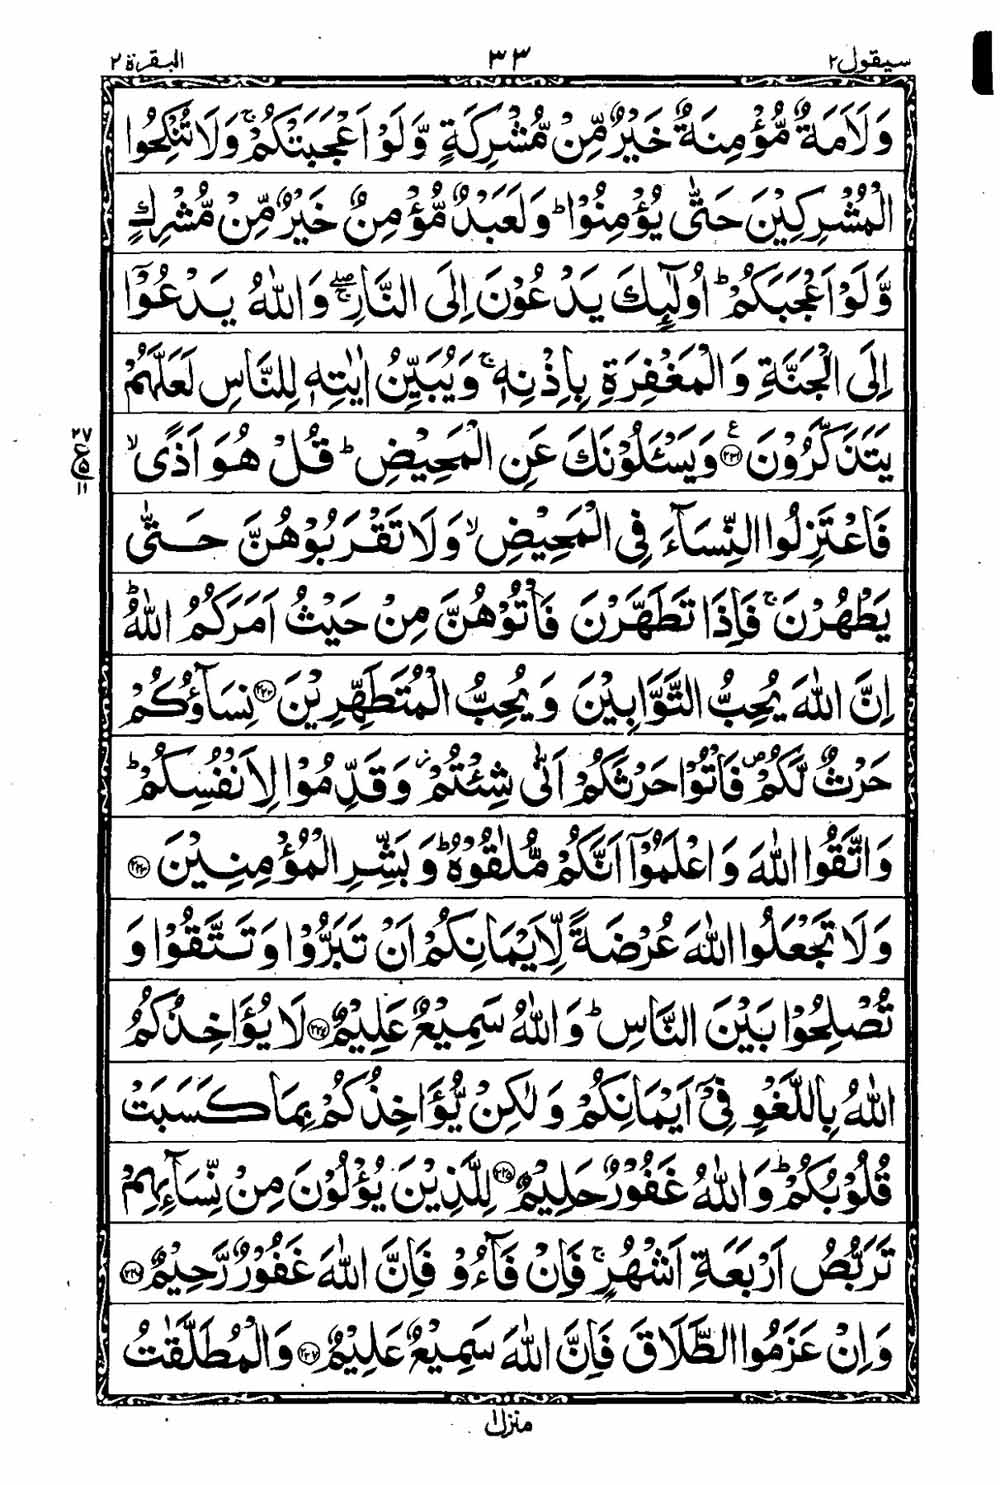 سیقول ۲
۳۳
البقرة ۲
وَلَاَمَةٌ مُّؤْمِنَةٌ خَيْرٌ مِّنْ مُّشْرِكَةٍ وَّلَوْ اَعْجَبَتْكُمْ ۚ وَلَا تُنْكِحُوا
الْمُشْرِكِيْنَ حَتّٰى يُؤْمِنُوْا ؕ وَلَعَبْدٌ مُّؤْمِنٌ خَيْرٌ مِّنْ مُّشْرِكٍ
وَّلَوْ اَعْجَبَكُمْ ؕ اُولٰٓئِكَ يَدْعُوْنَ اِلَى النَّارِ ۖۚ وَاللّٰهُ يَدْعُوْٓا
اِلَى الْجَنَّةِ وَالْمَغْفِرَةِ بِاِذْنِهٖ ۚ وَيُبَيِّنُ اٰيٰتِهٖ لِلنَّاسِ لَعَلَّهُمْ
يَتَذَكَّرُوْنَ ﴿۲۲۱﴾ ع وَيَسْـَٔلُوْنَكَ عَنِ الْمَحِيْضِ ؕ قُلْ هُوَ اَذًى ۙ
۲۷
ع
۱۱
فَاعْتَزِلُوا النِّسَآءَ فِى الْمَحِيْضِ ۙ وَلَا تَقْرَبُوْهُنَّ حَتّٰى
يَطْهُرْنَ ۚ فَاِذَا تَطَهَّرْنَ فَاْتُوْهُنَّ مِنْ حَيْثُ اَمَرَكُمُ اللّٰهُ ؕ
اِنَّ اللّٰهَ يُحِبُّ التَّوَّابِيْنَ وَيُحِبُّ الْمُتَطَهِّرِيْنَ ﴿۲۲۲﴾ نِسَآؤُكُمْ
حَرْثٌ لَّكُمْ ۪ فَاْتُوْا حَرْثَكُمْ اَنّٰى شِئْتُمْ ۫ وَقَدِّمُوْا لِاَنْفُسِكُمْ ؕ
وَاتَّقُوا اللّٰهَ وَاعْلَمُوْٓا اَنَّكُمْ مُّلٰقُوْهُ ؕ وَبَشِّرِ الْمُؤْمِنِيْنَ ﴿۲۲۳﴾
وَلَا تَجْعَلُوا اللّٰهَ عُرْضَةً لِّاَيْمَانِكُمْ اَنْ تَبَرُّوْا وَتَتَّقُوْا وَ
تُصْلِحُوْا بَيْنَ النَّاسِ ؕ وَاللّٰهُ سَمِيْعٌ عَلِيْمٌ ﴿۲۲۴﴾ لَا يُؤَاخِذُكُمُ
اللّٰهُ بِاللَّغْوِ فِىْٓ اَيْمَانِكُمْ وَلٰكِنْ يُّؤَاخِذُكُمْ بِمَا كَسَبَتْ
قُلُوْبُكُمْ ؕ وَاللّٰهُ غَفُوْرٌ حَلِيْمٌ ﴿۲۲۵﴾ لِلَّذِيْنَ يُؤْلُوْنَ مِنْ نِّسَآئِهِمْ
تَرَبُّصُ اَرْبَعَةِ اَشْهُرٍ ۚ فَاِنْ فَآءُوْ فَاِنَّ اللّٰهَ غَفُوْرٌ رَّحِيْمٌ ﴿۲۲۶﴾
وَاِنْ عَزَمُوا الطَّلَاقَ فَاِنَّ اللّٰهَ سَمِيْعٌ عَلِيْمٌ ﴿۲۲۷﴾ وَالْمُطَلَّقٰتُ
منزل ۱